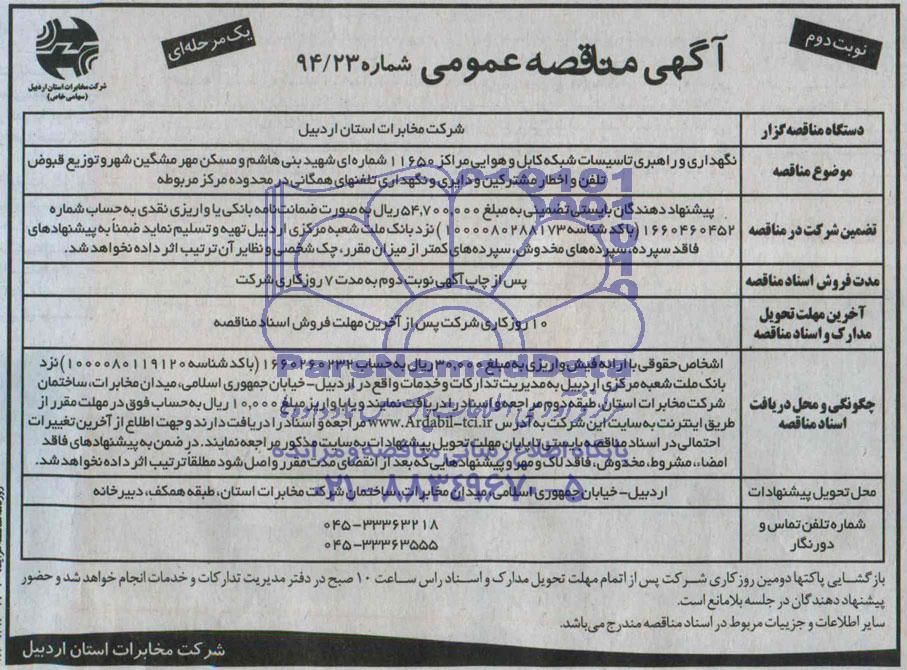 نوبت دوم
آگهی مناقصه عمومی شماره ۹۴/۲۳
یک مرحله‌ای
شرکت مخابرات استان اردبیل
(سهامی خاص)
دستگاه مناقصه گزار
شرکت مخابرات استان اردبیل
موضوع مناقصه
نگهداری و راهبری تاسیسات شبکه کابل و هوایی مراکز ۱۱۶۵۰ شماره ای شهید بنی هاشم و مسکن مهر مشگین شهر و توزیع قبوض
تلفن و اخطار مشترکین و دایری و نگهداری تلفنهای همگانی در محدوده مرکز مربوطه
تضمین شرکت در مناقصه
پیشنهاد دهندگان بایستی تضمینی به مبلغ ۵۴,۷۰۰,۰۰۰ ریال به صورت ضمانت نامه بانکی یا واریزی نقدی به حساب شماره
۱۶۶۰۴۶۰۴۵۲ (با کد شناسه ۱۰۰۰۰۸۰۲۸۸۱۷۳) نزد بانک ملت شعبه مرکزی اردبیل تهیه و تسلیم نماید ضمناً به پیشنهادهای
فاقد سپرده، سپرده‌های مخدوش، سپرده‌های کمتر از میزان مقرر، چک شخصی و نظایر آن ترتیب اثر داده نخواهد شد.
مدت فروش اسناد مناقصه
پس از چاپ آگهی نوبت دوم به مدت ۷ روز کاری شرکت
آخرین مهلت تحویل
مدارک و اسناد مناقصه
۱۰ روز کاری شرکت پس از آخرین مهلت فروش اسناد مناقصه
چگونگی و محل دریافت
اسناد مناقصه
اشخاص حقوقی با ارائه فیش واریزی به مبلغ ۳۰,۰۰۰ ریال به حساب ۱۶۶۰۲۶۰۲۳۲ (با کد شناسه ۱۰۰۰۰۸۰۱۱۹۱۲۰) نزد
بانک ملت شعبه مرکزی اردبیل به مدیریت تدارکات و خدمات واقع در اردبیل - خیابان جمهوری اسلامی، میدان مخابرات، ساختمان
شرکت مخابرات استان، طبقه دوم مراجعه و اسناد را دریافت نمایند و یا با واریز مبلغ ۱۰,۰۰۰ ریال به حساب فوق در مهلت مقرر از
طریق اینترنت به سایت این شرکت به آدرس www.Ardabil-tci.ir مراجعه و اسناد را دریافت دارند و جهت اطلاع از آخرین تغییرات
احتمالی در اسناد مناقصه بایستی تا پایان مهلت تحویل پیشنهادات به سایت مذکور مراجعه نمایند. در ضمن به پیشنهادهای فاقد
امضاء، مشروط، مخدوش، فاقد لاک و مهر و پیشنهادهایی که بعد از انقضای مدت مقرر واصل شود مطلقاً ترتیب اثر داده نخواهد شد.
محل تحویل پیشنهادات
اردبیل - خیابان جمهوری اسلامی، میدان مخابرات، ساختمان شرکت مخابرات استان، طبقه همکف، دبیرخانه
شماره تلفن تماس و
دورنگار
۰۴۵-۳۳۳۶۳۲۱۸
۰۴۵-۳۳۳۶۳۵۵۵
بازگشایی پاکتها دومین روز کاری شرکت پس از اتمام مهلت تحویل مدارک و اسناد راس ساعت ۱۰ صبح در دفتر مدیریت تدارکات و خدمات انجام خواهد شد و حضور
پیشنهاد دهندگان در جلسه بلامانع است.
سایر اطلاعات و جزییات مربوط در اسناد مناقصه مندرج می‌باشد.
شرکت مخابرات استان اردبیل
پایگاه اطلاع رسانی مناقصه و مزایده
۰۲۱-۸۸۳۴۹۶۷۰-۵